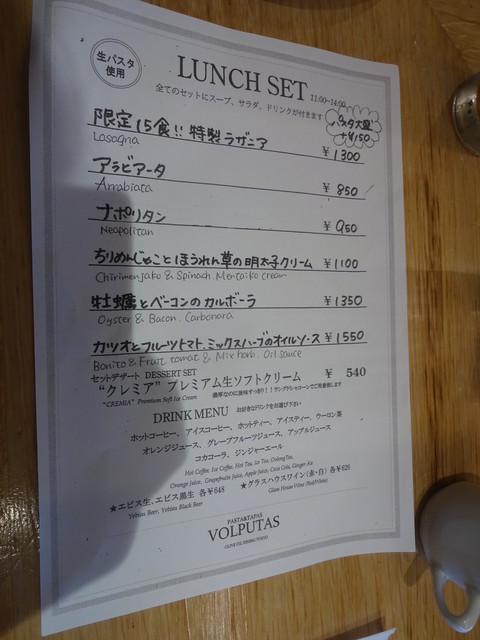 生パスタ
使用
LUNCH SET 11:00~14:00
全てのセットにスープ、サラダ、ドリンクが付きます
パスタ大盛
+¥150
限定15食!! 特製ラザニア ¥1300
Lasagna
アラビアータ ¥850
Arrabiata
ナポリタン ¥950
Neapolitan
ちりめんじゃことほうれん草の明太子クリーム ¥1100
Chirimenjako & Spinach. Mentaiko cream
牡蠣とベーコンのカルボーラ ¥1350
Oyster & Bacon. Carbonara
カツオとフルーツトマト、ミックスハーブのオイルソース ¥1550
Bonito & Fruit tomato & Mix herb. Oil sauce
セットデザート DESSERT SET
"クレミア" プレミアム生ソフトクリーム ¥ 540
"CREMIA" Premium Soft Ice Cream
DRINK MENU お好きなドリンクをお選び下さい
ホットコーヒー、アイスコーヒー、ホットティー、アイスティー、ウーロン茶
オレンジジュース、グレープフルーツジュース、アップルジュース
コカコーラ、ジンジャーエール
Hot Coffee, Ice Coffee, Hot Tea, Ice Tea, OolongTea,
Orange Juice, Grapefruits Juice, Apple Juice, Coca Cola, Ginger Ale
★エビス生、エビス黒生 各¥648 ★グラスハウスワイン(赤・白)各¥626
Yebisu Beer, Yebisu Black Beer Glass House Wine (Red/White)
PASTA&TAPAS
VOLPUTAS